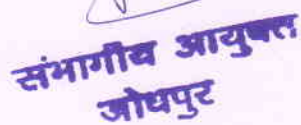 संभागीय आयुक्त
जोधपुर